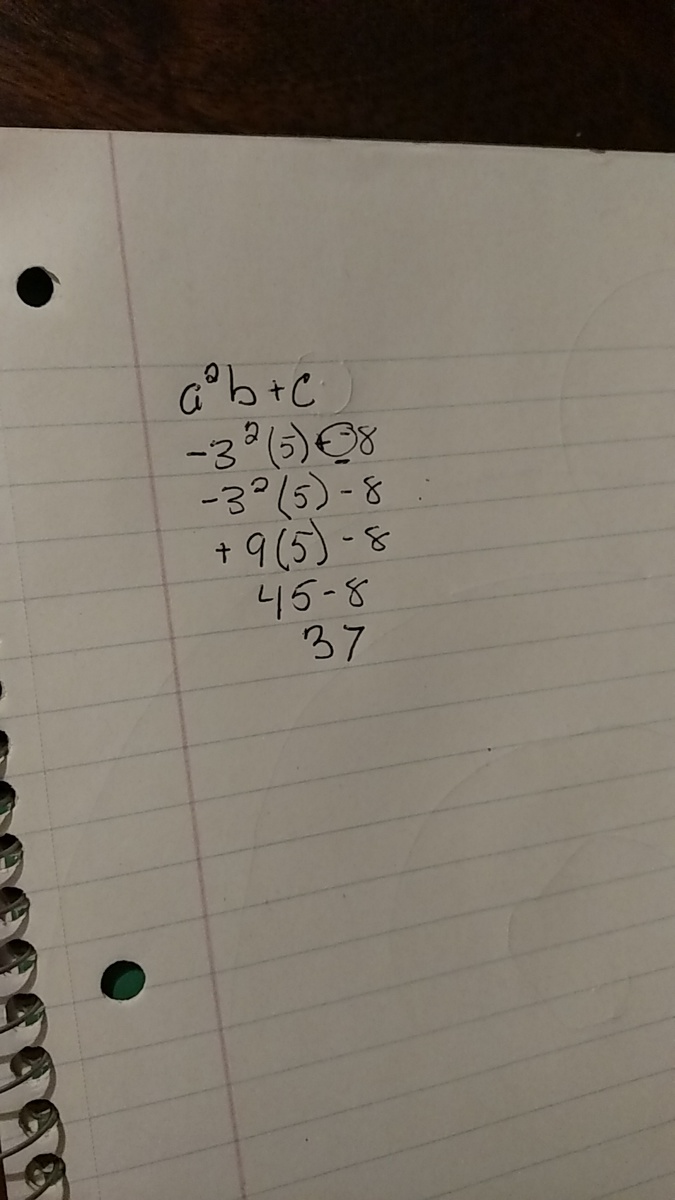 a²b + c
-3²(5) + -8
-3²(5) - 8
+ 9(5) - 8
45 - 8
37